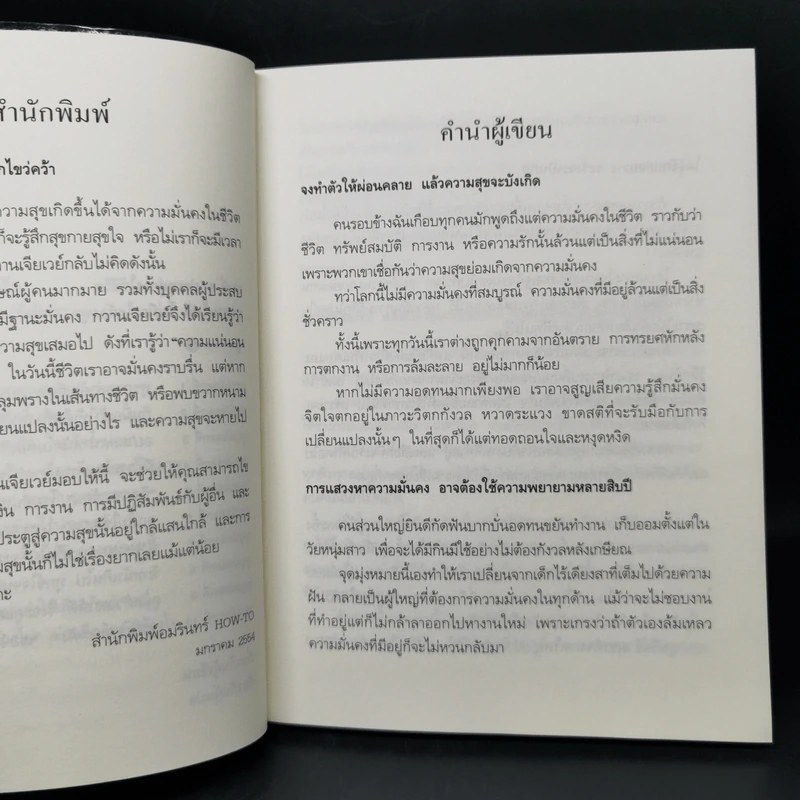 สำนักพิมพ์
ไขว่คว้า
ความสุขเกิดขึ้นได้จากความมั่นคงในชีวิต
ก็จะรู้สึกสุขกายสุขใจ หรือไม่เราก็จะมีเวลา
กวานเจียเวย์กลับไม่คิดดังนั้น
ผู้คนมากมาย รวมทั้งบุคคลผู้ประสบ
มีฐานะมั่นคง กวานเจียเวย์จึงได้เรียนรู้ว่า
ความสุขเสมอไป ดังที่เรารู้ว่า “ความแน่นอน
ในวันนี้ชีวิตเราอาจมั่นคงราบรื่น แต่หาก
ลุมพรางในเส้นทางชีวิต หรือพบขวากหนาม
ยนแปลงนั้นอย่างไร และความสุขจะหายไป
นเจียเวย์มอบให้นี้ จะช่วยให้คุณสามารถไข
งิน การงาน การมีปฏิสัมพันธ์กับผู้อื่น และ
ประตูสู่ความสุขนั้นอยู่ใกล้แสนใกล้ และการ
มสุขนั้นก็ไม่ใช่เรื่องยากเลยแม้แต่น้อย
สำนักพิมพ์อมรินทร์ HOW-TO
มกราคม 2554
คำนำผู้เขียน
จงทำตัวให้ผ่อนคลาย แล้วความสุขจะบังเกิด
คนรอบข้างฉันเกือบทุกคนมักพูดถึงแต่ความมั่นคงในชีวิต ราวกับว่า
ชีวิต ทรัพย์สมบัติ การงาน หรือความรักนั้นล้วนแต่เป็นสิ่งที่ไม่แน่นอน
เพราะพวกเขาเชื่อกันว่าความสุขย่อมเกิดจากความมั่นคง
ทว่าโลกนี้ไม่มีความมั่นคงที่สมบูรณ์ ความมั่นคงที่มีอยู่ล้วนแต่เป็นสิ่ง
ชั่วคราว
ทั้งนี้เพราะทุกวันนี้เราต่างถูกคุกคามจากอันตราย การทรยศหักหลัง
การตกงาน หรือการล้มละลาย อยู่ไม่มากก็น้อย
หากไม่มีความอดทนมากเพียงพอ เราอาจสูญเสียความรู้สึกมั่นคง
จิตใจตกอยู่ในภาวะวิตกกังวล หวาดระแวง ขาดสติที่จะรับมือกับการ
เปลี่ยนแปลงนั้นๆ ในที่สุดก็ได้แต่ทอดถอนใจและหงุดหงิด
การแสวงหาความมั่นคง อาจต้องใช้ความพยายามหลายสิบปี
คนส่วนใหญ่ยินดีกัดฟันบากบั่นอดทนขยันทำงาน เก็บออมตั้งแต่ใน
วัยหนุ่มสาว เพื่อจะได้มีกินมีใช้อย่างไม่ต้องกังวลหลังเกษียณ
จุดมุ่งหมายนี้เองทำให้เราเปลี่ยนจากเด็กไร้เดียงสาที่เต็มไปด้วยความ
ฝัน กลายเป็นผู้ใหญ่ที่ต้องการความมั่นคงในทุกด้าน แม้ว่าจะไม่ชอบงาน
ที่ทำอยู่แต่ก็ไม่กล้าลาออกไปหางานใหม่ เพราะเกรงว่าถ้าตัวเองล้มเหลว
ความมั่นคงที่มีอยู่ก็จะไม่หวนกลับมา